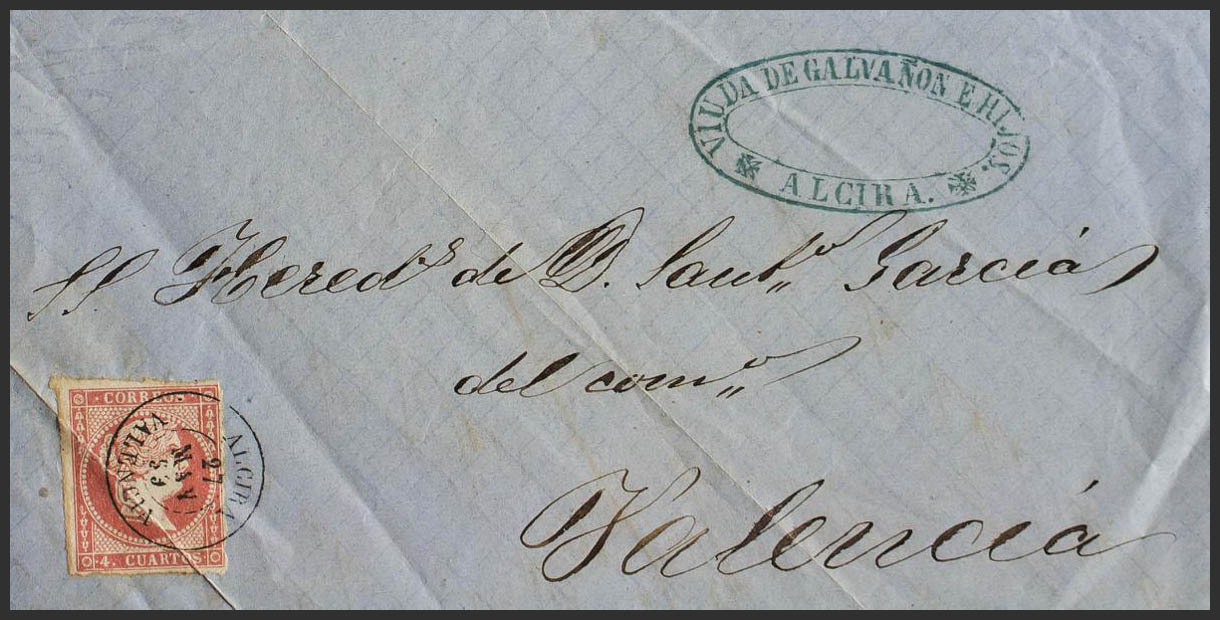 VIUDA DE GALVAÑON E HIJOS.
ALCIRA.
SS Hered.s de D. Sant.o Garciá
del com.o
Valenciá
CORREOS.
ALCIRA
27
ABR
59
VALENCIA
4. CUARTOS